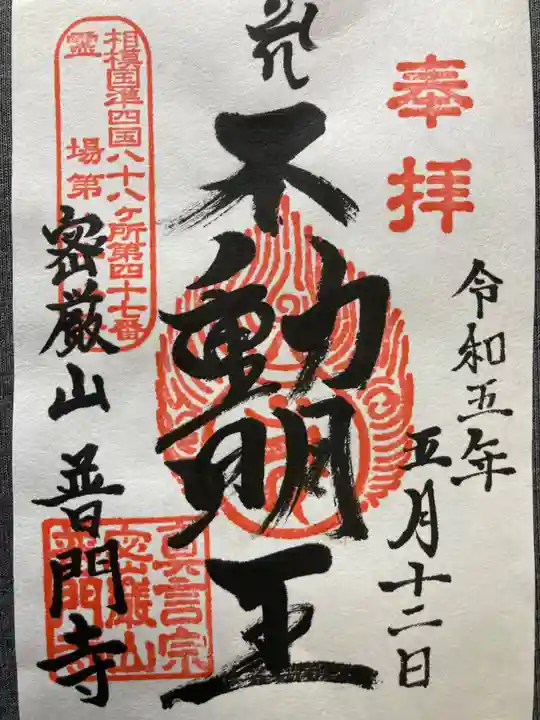 奉拝
令和五年
五月十二日
不動明王
相模国準四国八十八ケ所第四十七番
霊場第
密厳山 普門寺
真言宗
密厳山
普門寺